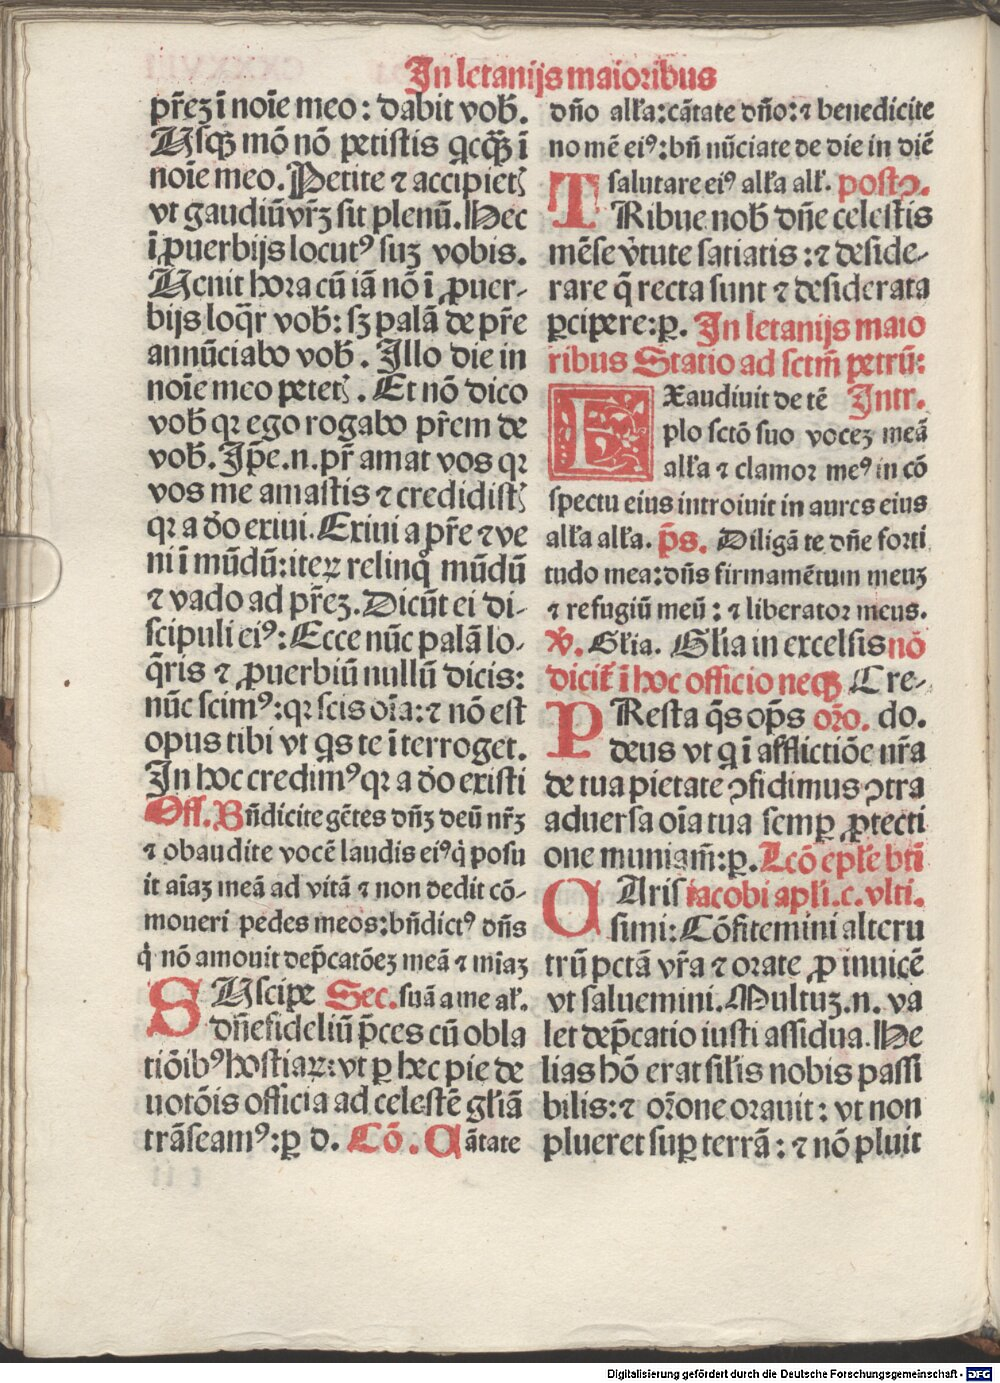 In letanijs maioribus
p̄rez ī noīe meo: dabit vob̄.
Usqꝫ mō nō petistis qcq̄ꝫ ī
noīe meo. Petite ⁊ accipietꝭ
vt gaudiū vr̄ꝫ sit plenū. Hec
ī ꝓuerbijs locutꝰ suꝫ vobis.
Uenit hora cū iā nō ī ꝓuer-
bijs loq̄r vob̄: sꝫ palā de p̄re
annūciabo vob̄. Illo die in
noīe meo petetꝭ. Et nō dico
vob̄ qꝛ ego rogabo p̄rem de
vob̄. Ip̄e.n.pr̄ amat vos qꝛ
vos me amastis ⁊ credidistꝭ
qꝛ a dō exiui. Exiui a p̄re ⁊ ve
ni ī mūdū: iteꝝ relinq̊ mūdū
⁊ vado ad p̄reꝫ. Dicūt ei di-
scipuli eiꝰ: Ecce nūc palā lo-
q̄ris ⁊ ꝓuerbiū nullū dicis:
nūc scimꝰ: qꝛ scis oīa: ⁊ nō est
opus tibi vt qs te īterroget.
In hoc credimꝰ qꝛ a dō existi
Off. Bn̄dicite gētes dn̄ꝫ deū nr̄ꝫ
⁊ obaudite vocē laudis eiꝰ q̇ posu
it aīaꝫ meā ad vitā ⁊ non dedit cō-
moueri pedes meos: bn̄dictꝰ dn̄s
q̇ nō amouit dep̄catōeꝫ meā ⁊ mīaꝫ
SUscipe Sec. suā a me al̄.
dn̄e fideliū p̄ces cū obla
tiōibꝰ hostiaꝝ: vt ꝑ hec pie de
uotōis officia ad celestē gl̄iā
trāseamꝰ: ꝑ d. Cō. Cātate
dn̄o all̄a: cātate dn̄o: ⁊ benedicite
nomē eiꝰ: bn̄ nūciate de die in diē
salutare eiꝰ all̄a all̄. postꝯ.
TRibue nob̄ dn̄e celestis
mēse v̓tute satiatis: ⁊ deside-
rare q̄ recta sunt ⁊ desiderata
ꝑcipere: ꝑ. In letanijs maio
ribus Statio ad sctm̄ petrū:
EXaudiuit de tē Intr.
plo sctō suo voceꝫ meā
all̄a ⁊ clamor meꝰ in cō
spectu eius introiuit in aures eius
all̄a all̄a. p̄s. Diligā te dn̄e forti
tudo mea: dn̄s firmamētum meuꝫ
⁊ refugiū meū: ⁊ liberator meus.
v̓. Gl̄ia. Gl̄ia in excelsis nō
dicit̄ ī hoc officio neqꝫ Cre-
PResta q̄s op̄s or̄o. do.
deus vt q ī afflictiōe nr̄a
de tua pietate ꝯfidimus ꝯtra
aduersa oīa tua semꝑ ꝓtecti
one muniam̄: ꝑ. Lcō epl̄e bti
CArissi iacobi apl̄i.c.vlti.
simi: Cōfitemini alteru
trū pctā vr̄a ⁊ orate ꝓ inuicē
vt saluemini. Multuꝫ.n. va
let dep̄catio iusti assidua. He
lias hō erat sil̄is nobis passi
bilis: ⁊ or̄one orauit: vt non
plueret suꝑ terrā: ⁊ nō pluit
Digitalisierung gefördert durch die Deutsche Forschungsgemeinschaft - DFG